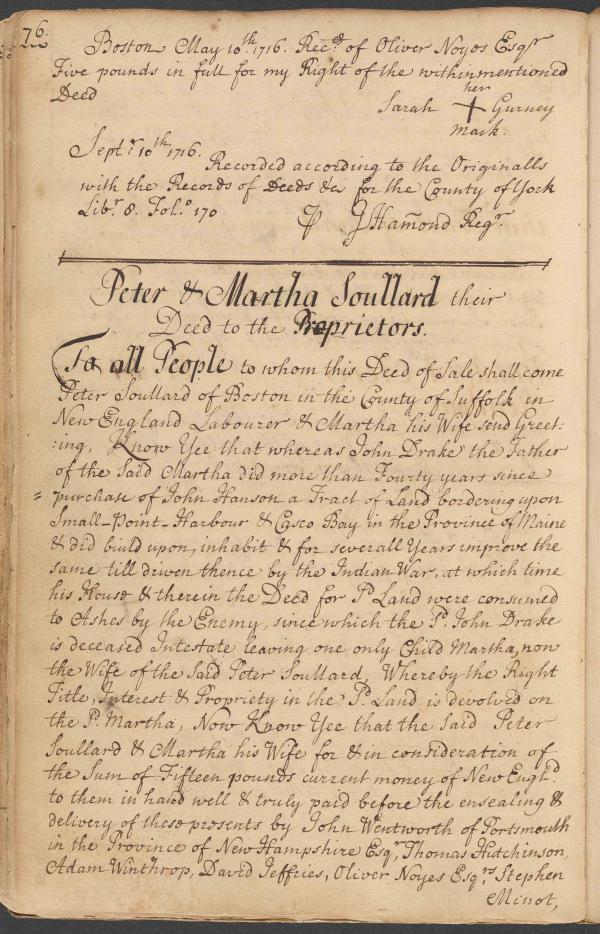 76.
Boston May 10th. 1716. Recd. of Oliver Noyes Esqr
Five pounds in full for my Right of the within mentioned
Deed
her
Sarah + Gurney
mark.
Septr. 10th 1716.
Recorded according to the Originalls
with the Records of Deeds &c for the County of York
Libr. 8. Fol.o 170
J Ham̄ond Regr.
Peter & Martha Soullard their
Deed to the Proprietors.
To all People to whom this Deed of Sale shall come
Peter Soullard of Boston in the County of Suffolk in
New England Labourer & Martha his Wife send Greet:
:ing, Know Yee that whereas John Drake the Father
of the Said Martha did more than Fourty years since
= purchase of John Hanson a Tract of Land bordering upon
Small-Point-Harbour & Casco Bay in the Province of Maine
& did build upon, inhabit & for severall Years improve the
same till driven thence by the Indian War, at which time
his House & therein the Deed for sd. Land were consumed
to Ashes by the Enemy, since which the sd. John Drake
is deceased Intestate leaving one only Child Martha, now
the Wife of the Said Peter Soullard, Whereby the Right
Title, Interest & Propriety in the sd. Land is devolved on
the sd. Martha, Now Know Yee that the Said Peter
Soullard & Martha his Wife for & in consideration of
the Sum of Fifteen pounds current money of New Engld.
to them in hand well & truly paid before the ensealing &
delivery of these presents by John Wentworth of Portsmouth
in the Province of New Hampshire Esqr, Thomas Hutchinson,
Adam Winthrop, David Jeffries, Oliver Noyes Esqrs, Stephen
Minot,